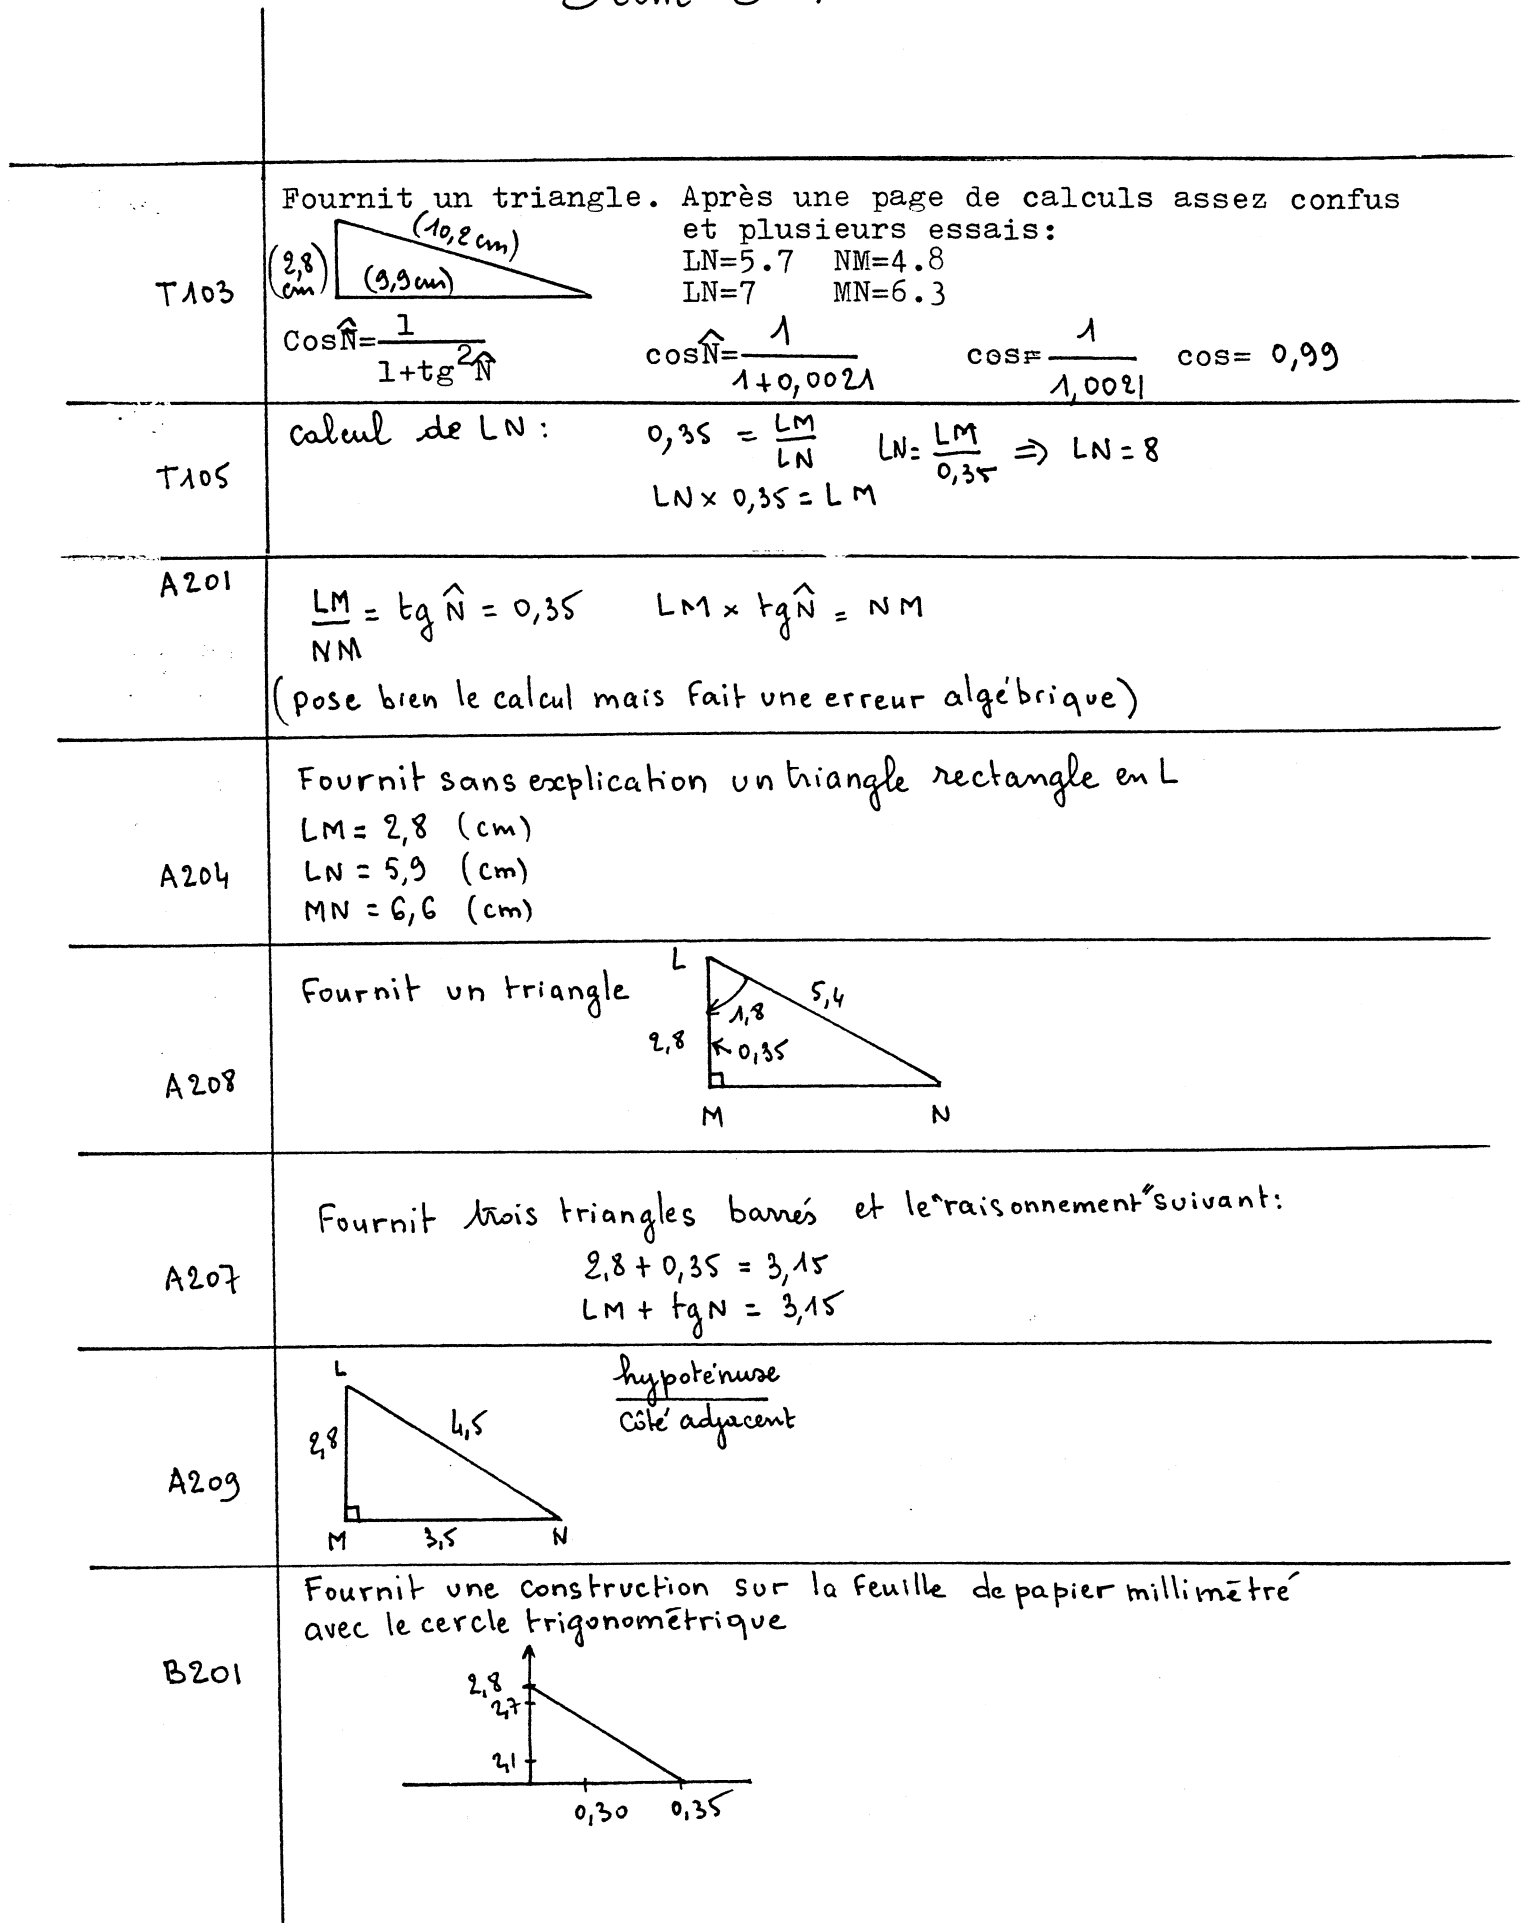 T103
Fournit un triangle. Après une page de calculs assez confus
et plusieurs essais:
(2,8 cm) (10,2 cm) (9,9 cm)
LN=5.7 NM=4.8
LN=7 MN=6.3
CosN̂=1/(1+tg²N̂) cosN̂=1/(1+0,0021) cos=1/1,0021 cos= 0,99
T105
Calcul de LN : 0,35 = LM/LN LN = LM/0,35 ⇒ LN = 8
LN × 0,35 = LM
A201
LM/NM = tg N̂ = 0,35 LM × tg N̂ = NM
(pose bien le calcul mais fait une erreur algébrique)
A204
Fournit sans explication un triangle rectangle en L
LM = 2,8 (cm)
LN = 5,9 (cm)
MN = 6,6 (cm)
A208
Fournit un triangle
L
5,4
1,8
2,8
0,35
M N
A207
Fournit trois triangles barrés et le "raisonnement" suivant :
2,8 + 0,35 = 3,15
LM + tgN = 3,15
A209
L
2,8
4,5
M 3,5 N
hypoténuse
Côté adjacent
B201
Fournit une construction sur la feuille de papier millimétré
avec le cercle trigonométrique
2,8
2,7
2,1
0,30 0,35